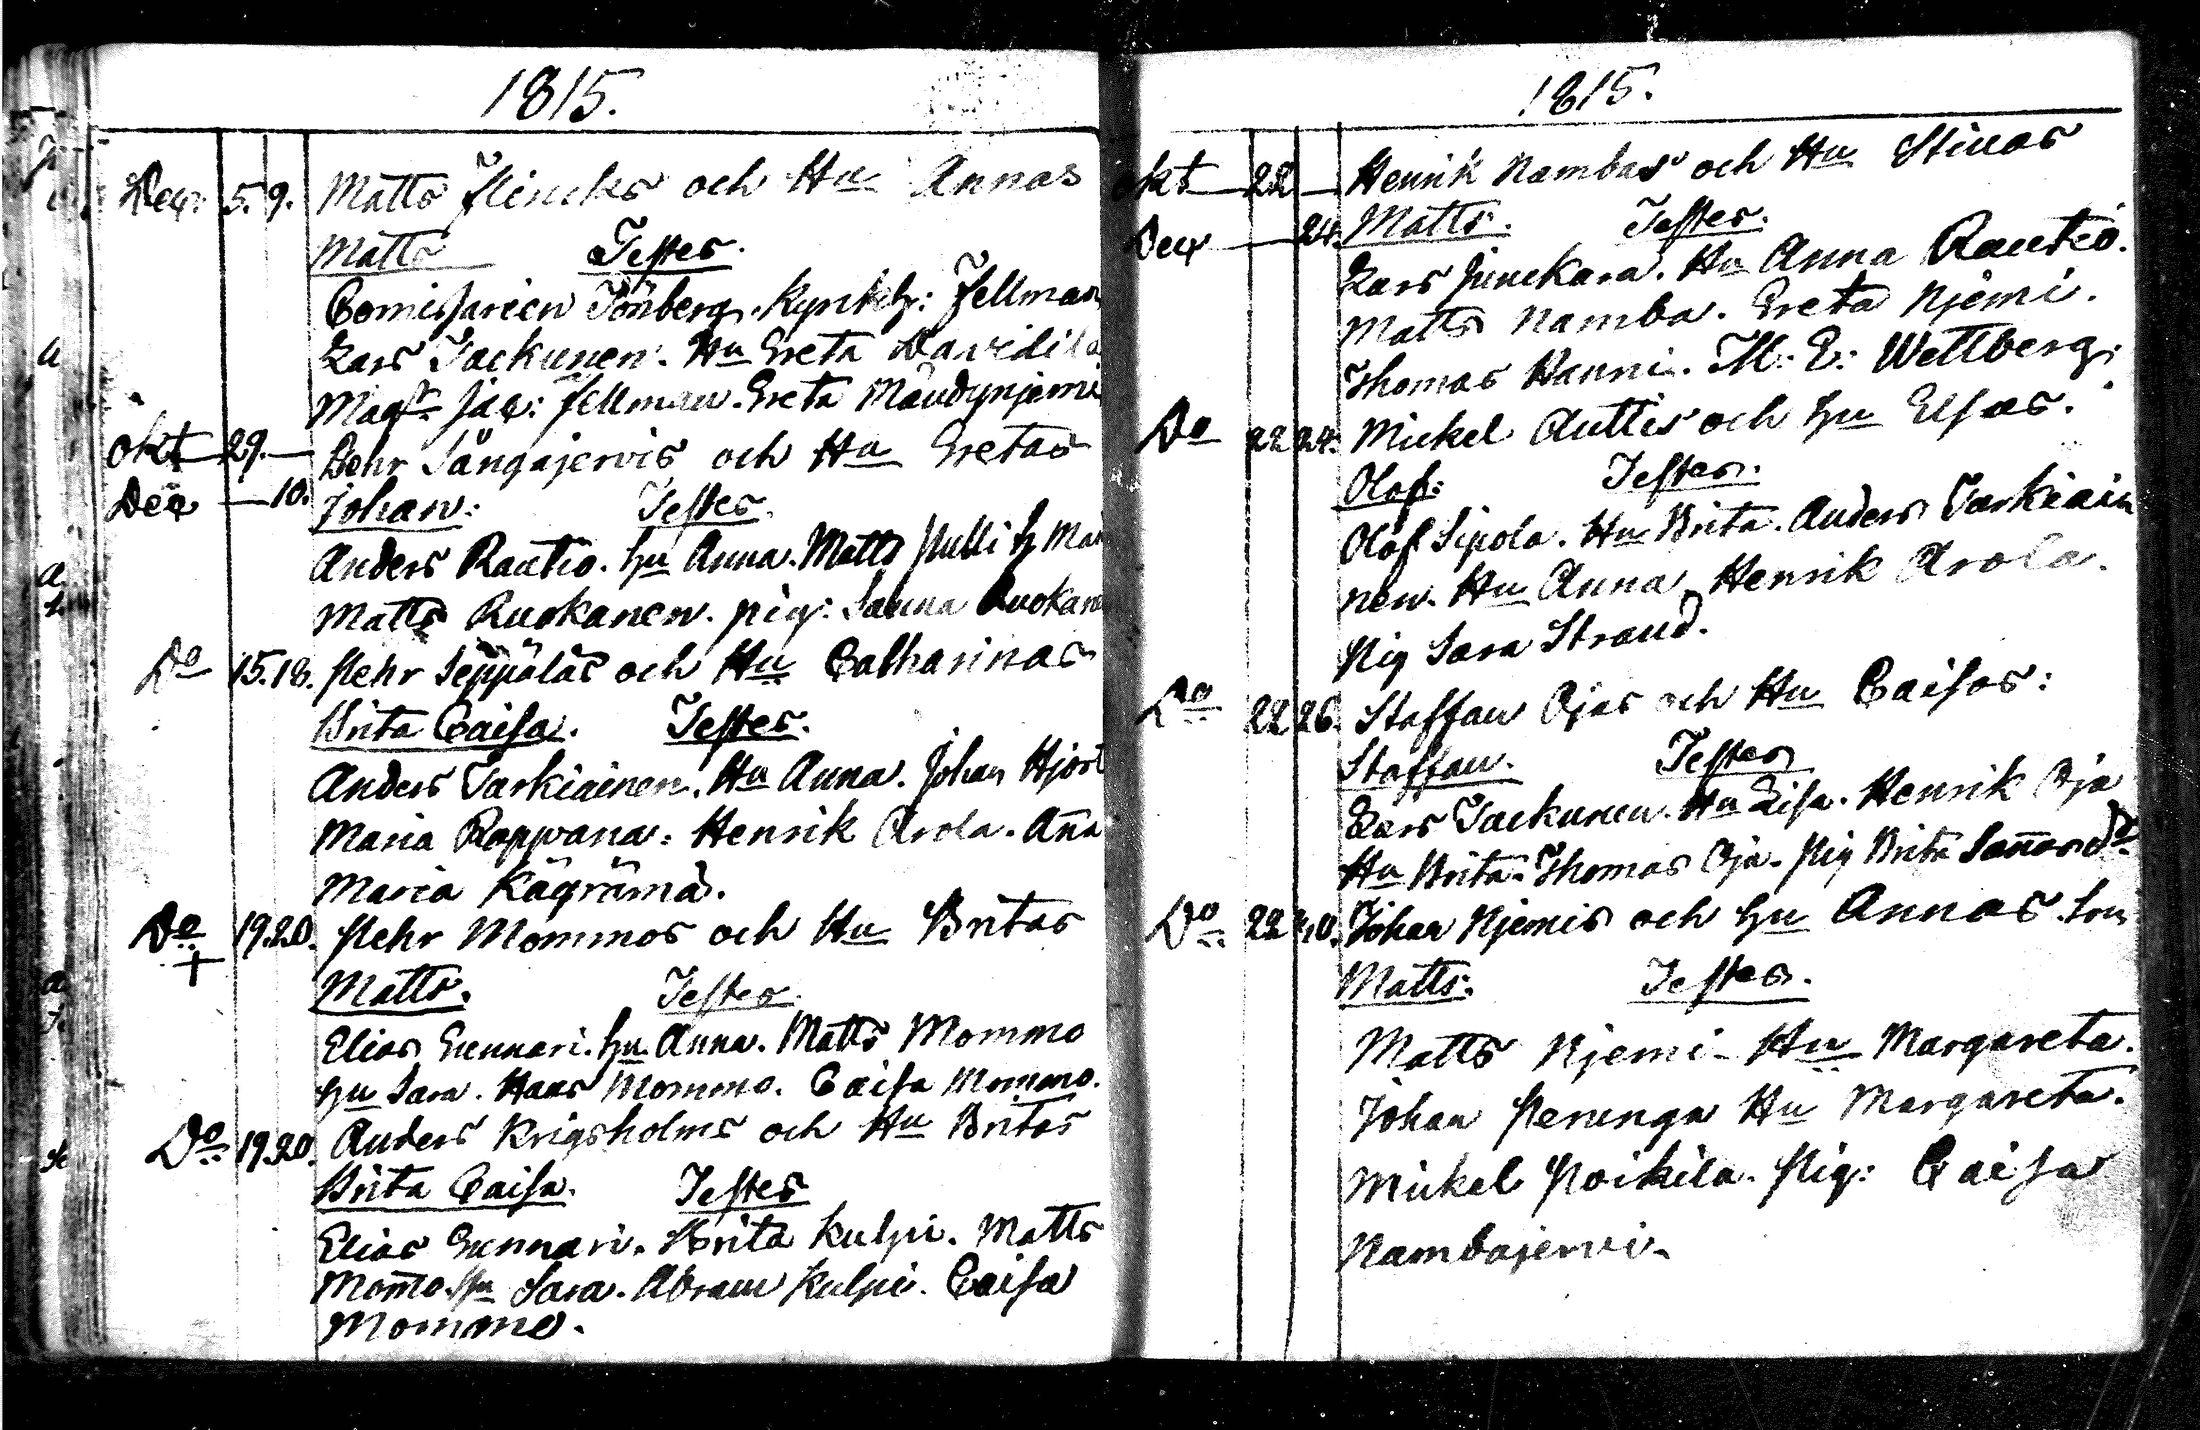 1815.
Dec: 5. 9. Matts Flincks och Hu Annas
Matts Testes.
Comissarien Tönberg. Kyrkoh: Fellman
Lars Tackunen. Hu Greta Davidila
Magr Jac: Fellman. Greta Mändynjemi
Okt 29. — Pehr Sångajervis och Hu Gretas
Dec — 10. Johan: Testes.
Anders Rautio. hu Anna. Matts Pulli h Ma
Matts Ruokanen. pig: Sanna Ruokan
Do 15. 18. Pehr Seppäläs och Hu Catharinas
Brita Caisa. Testes.
Anders Tarkiainen. Hu Anna. Johan Hjort
Maria Roppana: Henrik Arola. Ana
Maria Kägrämä.
Do 19. 20. Pehr Mommos och Hu Britas
+
Matts. Testes
Elias Gunnari. hu Anna. Matts Mommo
hu Sara. Hans Mommo. Caisa Mommo.
Do 19. 20. Anders Krigsholms och Hu Britas
Brita Caisa. Testes
Elias Gunnari. Brita Kulpi. Matts
Momo. hu Sara. Abram Kulpi. Caisa
Mommo.
1815.
Okt 22 — Henrik Nambas och Hu Stinas
Dec — 24. Matts: Testes.
Lars Junckara. Hu Anna Rautio.
Matts Namba. Greta Njemi.
Thomas Hanni. M: E: Wettberg.
Do 22 24. Mickel Auttis och hu Elsas.
Olof: Testes.
Olof Sipola. Hu Brita. Anders Tarkiain
nen. Hu Anna. Henrik Arola.
Pig Sara Strand.
Do 22 26. Staffan Ojas och Hu Caisas:
Staffan. Testes
Lars Tackunen. Hu Lisa. Henrik Oja
Hu Brita. Thomas Oja. Pig Brita
Do 22 Johan Njemis och hu Annas Son
Matts: Testes.
Matts Njemi - Hu Margareta.
Johan Perunga Hu Margareta.
Mickel Poikila. Pig: Caisa
Nambajervi.